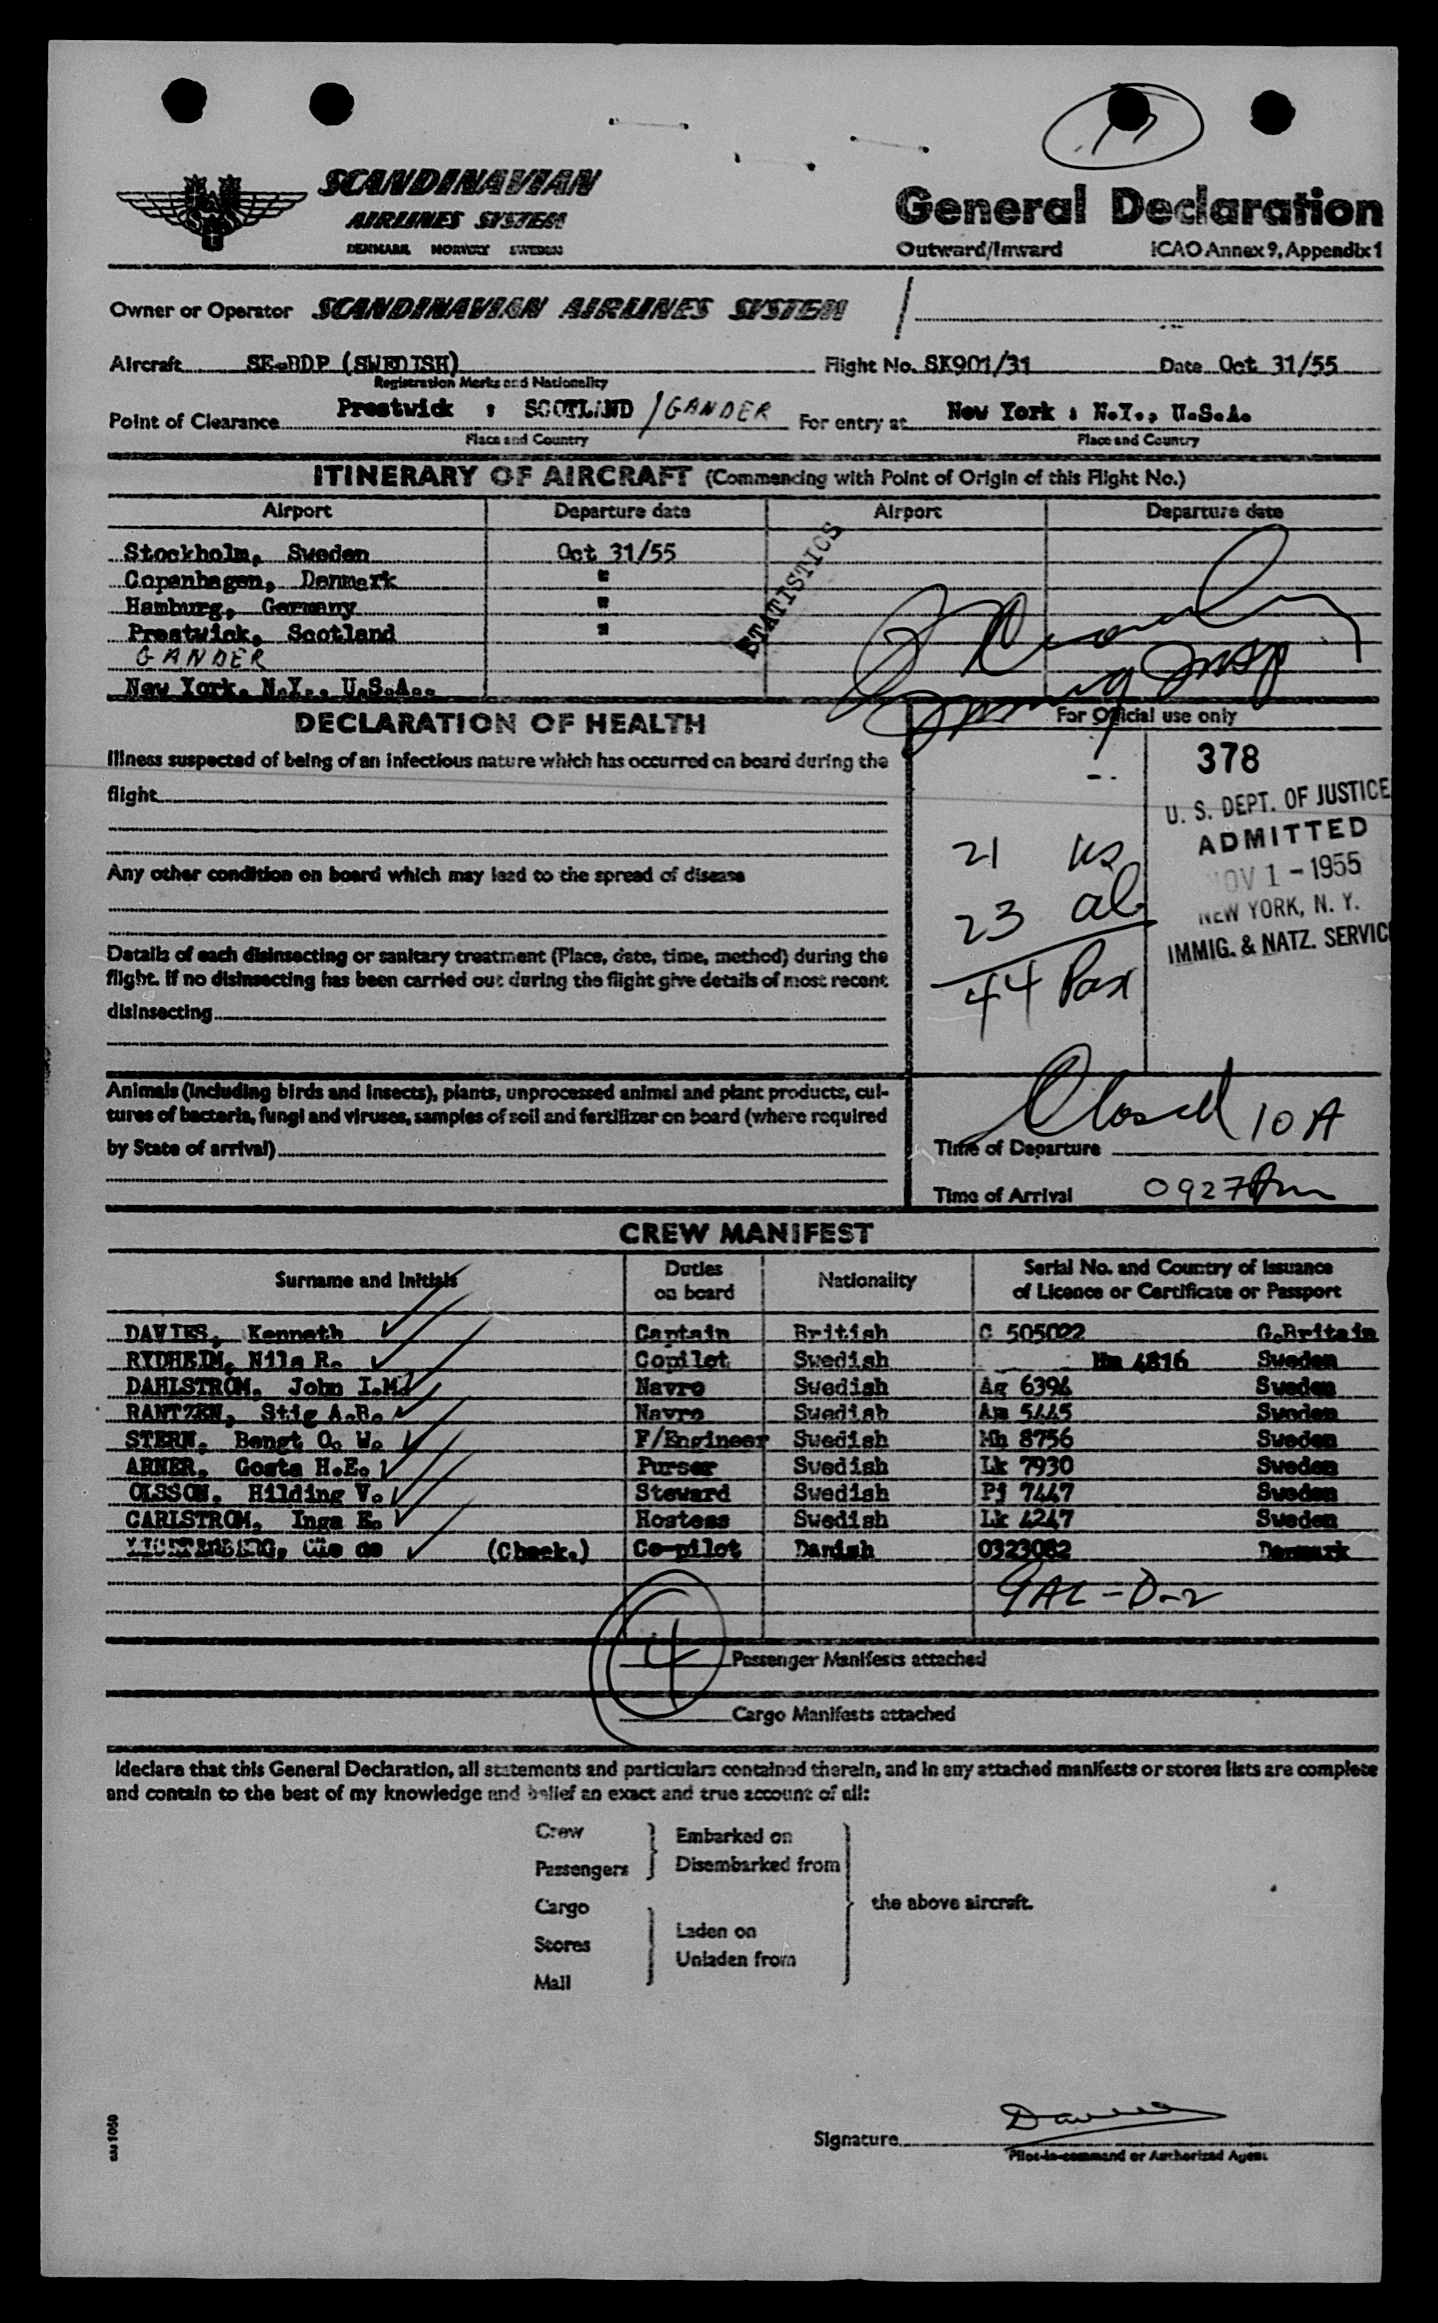 17
SCANDINAVIAN
AIRLINES SYSTEM
DENMARK NORWAY SWEDEN
General Declaration
Outward/Inward ICAO Annex 9, Appendix 1
Owner or Operator SCANDINAVIAN AIRLINES SYSTEM
Aircraft SE-BDP (SWEDISH) Flight No. SK901/31 Date Oct 31/55
Registration Marks and Nationality
Point of Clearance Prestwick : SCOTLAND /GANDER For entry at New York : N.Y., U.S.A.
Place and Country Place and Country
ITINERARY OF AIRCRAFT (Commencing with Point of Origin of this Flight No.)
Airport Departure date Airport Departure date
Stockholm, Sweden Oct 31/55
Copenhagen, Denmark "
Hamburg, Germany "
Prestwick, Scotland "
GANDER
New York, N.Y., U.S.A..
STATISTICS
Immig Insp
DECLARATION OF HEALTH
For Official use only
Illness suspected of being of an infectious nature which has occurred on board during the
flight
Any other condition on board which may lead to the spread of disease
Details of each disinsecting or sanitary treatment (Place, date, time, method) during the
flight. If no disinsecting has been carried out during the flight give details of most recent
disinsecting
378
U. S. DEPT. OF JUSTICE
ADMITTED
NOV 1 - 1955
NEW YORK, N. Y.
IMMIG. & NATZ. SERVIC
21 us
23 al
44 Pax
Animals (including birds and insects), plants, unprocessed animal and plant products, cul-
tures of bacteria, fungi and viruses, samples of soil and fertilizer on board (where required
by State of arrival)
Closed 10 A
Time of Departure
Time of Arrival 0927 Am
CREW MANIFEST
Surname and Initials Duties on board Nationality Serial No. and Country of Issuance
of Licence or Certificate or Passport
DAVIES, Kenneth Captain British C 505022 G.Britain
RYDHEIM, Nils R. Copilot Swedish Mm 4816 Sweden
DAHLSTROM, John I.M. Navro Swedish Ag 6394 Sweden
RANTZEN, Stig A.B. Navro Swedish Am 5445 Sweden
STERN, Bengt O. W. F/Engineer Swedish Mh 8756 Sweden
ARNER, Gosta H.E. Purser Swedish Lk 7930 Sweden
OLSSON, Hilding V. Steward Swedish Pj 7447 Sweden
CARLSTROM, Inga E. Hostess Swedish Lk 4247 Sweden
(Check.) Co-pilot Danish 0323082 Denmark
GAL-D-2
4 Passenger Manifests attached
Cargo Manifests attached
I declare that this General Declaration, all statements and particulars contained therein, and in any attached manifests or stores lists are complete
and contain to the best of my knowledge and belief an exact and true account of all:
Crew
Passengers
Embarked on
Disembarked from
Cargo
Stores
Mail
Laden on
Unladen from
the above aircraft.
Signature Davies
Pilot-in-command or Authorized Agent